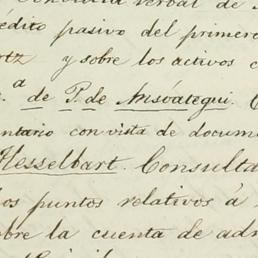 verbal de
édito pasivo del primero
rtz y sobre los activos c
a de P. de Ansoategui. C
entario con vista de docume
Hesselbart. Consulta
os puntos relativos á
bre la cuenta de adm